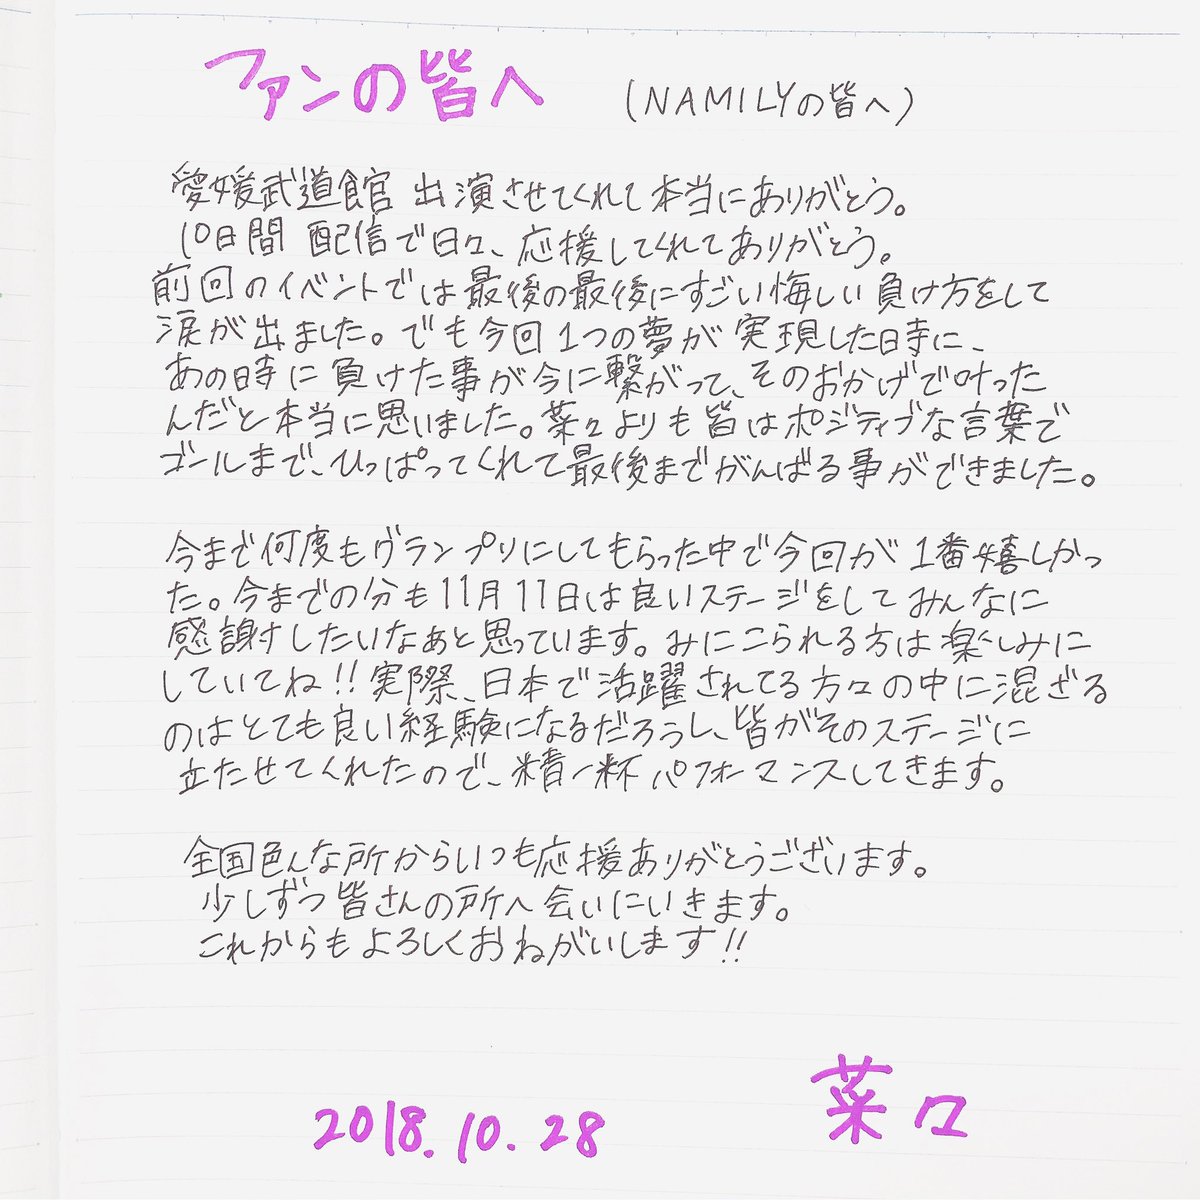 ファンの皆へ (NAMILYの皆へ)
愛媛武道館 出演させてくれて本当にありがとう。
10日間 配信で日々、応援してくれてありがとう。
前回のイベントでは最後の最後にすごい悔しい負け方をして
涙が出ました。でも今回1つの夢が実現した時に、
あの時に負けた事が今に繋がって、そのおかげで叶った
んだと本当に思いました。菜々よりも皆はポジティブな言葉で
ゴールまで、ひっぱってくれて最後までがんばる事ができました。
今まで何度もグランプリにしてもらった中で今回が1番嬉しかっ
た。今までの分も11月11日は良いステージをしてみんなに
感謝したいなぁと思っています。みにこられる方は楽しみに
していてね!!実際、日本で活躍されてる方々の中に混ざる
のはとても良い経験になるだろうし、皆がそのステージに
立たせてくれたので、精一杯パフォーマンスしてきます。
全国色んな所からいつも応援ありがとうございます。
少しずつ皆さんの所へ会いにいきます。
これからもよろしくおねがいします!!
菜々
2018.10.28